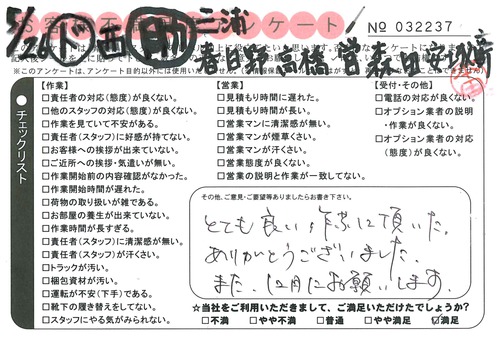 お客様不満足アンケート
No 032237
三浦
西
春日部 高橋 営 森田
※このアンケートは、アンケート目的以外には使用いたしません。
チェックリスト
【作業】
□責任者の対応(態度)が良くない。
□他のスタッフの対応(態度)が良くない。
□作業を見ていて不安がある。
□責任者(スタッフ)に好感が持てない。
□お客様への挨拶が出来ていない。
□ご近所への挨拶・気遣いが無い。
□作業開始前の内容確認がなかった。
□作業開始時間が遅れた。
□荷物の取り扱いが雑である。
□お部屋の養生が出来ていない。
□作業時間が長すぎる。
□責任者(スタッフ)に清潔感が無い。
□責任者(スタッフ)が汗くさい。
□トラックが汚い。
□梱包資材が汚い。
□運転が不安(下手)である。
□靴下の履き替えをしてない。
□スタッフにやる気がみられない。
【営業】
□見積もり時間に遅れた。
□見積もり時間が長い。
□営業マンに清潔感が無い。
□営業マンが煙草くさい。
□営業マンが汗くさい。
□営業態度が良くない。
□営業の説明と作業が一致してない。
【受付・その他】
□電話の対応が良くない。
□オプション業者の説明
・作業が良くない。
□オプション業者の対応
(態度)が良くない。
その他、ご意見・ご要望等ありましたらお書き下さい。
とても良い作業に頂いた。
ありがとうございました。
また、12月にお願いします。
☆当社をご利用いただきまして、ご満足いただけたでしょうか?
□不満 □やや不満 □普通 □やや満足 ☑満足